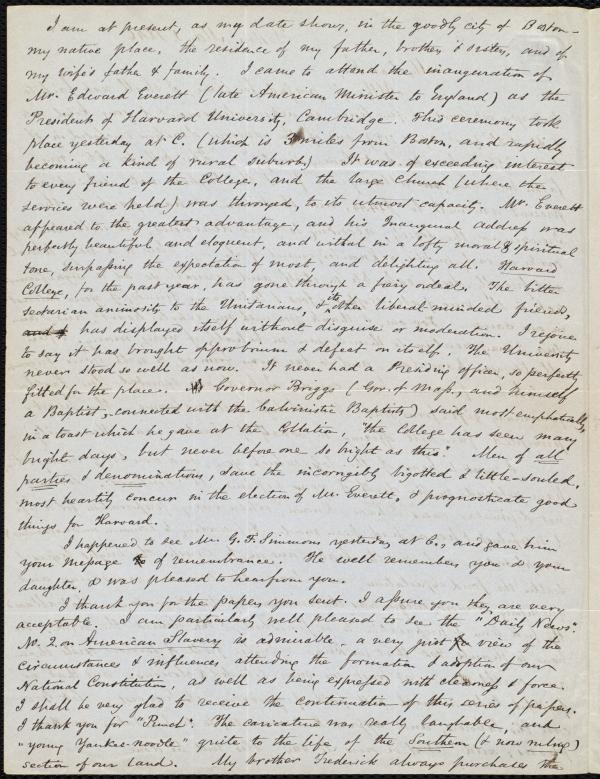 I am at present, as my date shows, in the goodly city of Boston -
my native place, the residence of my father, brother & sister, and of
my wife's father & family. I came to attend the inauguration of
Mr. Edward Everett (late American Minister to England) as the
President of Harvard University, Cambridge. This ceremony took
place yesterday at C. (which is 3 miles from Boston, and rapidly
becoming a kind of rural suburb) It was of exceeding interest
to every friend of the College, and the large Church (where the
services were held) was thronged, to its utmost capacity. Mr. Everett
appeared to the greatest advantage, and his Inaugural Address was
perfectly beautiful and eloquent, and withal in a lofty moral & spiritual
tone, surpassing the expectation of most, and delighting all. Harvard
College, for the past year, has gone through a fiery ordeal. The bitter
sectarian animosity to the Unitarians, & its other liberal minded friends,
and has displayed itself without disguise or moderation. I rejoice
to say it has brought opprobrium & defeat on itself. The University
never stood so well as now. It never had a Presiding officer, so perfectly
fitted for the place. Governor Briggs (Gov. of Mass, and himself
a Baptist, connected with the Calvinistic Baptists) said most emphatically
in a toast which he gave at the Collation, "the College has seen many
bright days, but never before one so bright as this." Men of all
parties & denominations, save the incorrigibly bigotted & little-souled,
most heartily concur in the election of Mr. Everett, & prognosticate good
things for Harvard.
I happened to see Mr. G. F. Simmons yesterday at C., and gave him
your message of remembrance. He well remembers you & your
daughter & was pleased to hear from you.
I thank you for the papers you sent. I assure you they are very
acceptable. I am particularly well pleased to see the "Daily News".
No. 2 on American Slavery is admirable, a very just view of the
circumstances & influences attending the formation & adoption of our
National Constitution, as well as being expressed with clearness & force.
I shall be very glad to receive the continuation of this series of papers.
I thank you for "Punch". The caricature was really laughable, and
"young Yankee-noodle" quite to the life of the Southern (& now ruling)
section of our land. My brother Frederick always purchases the